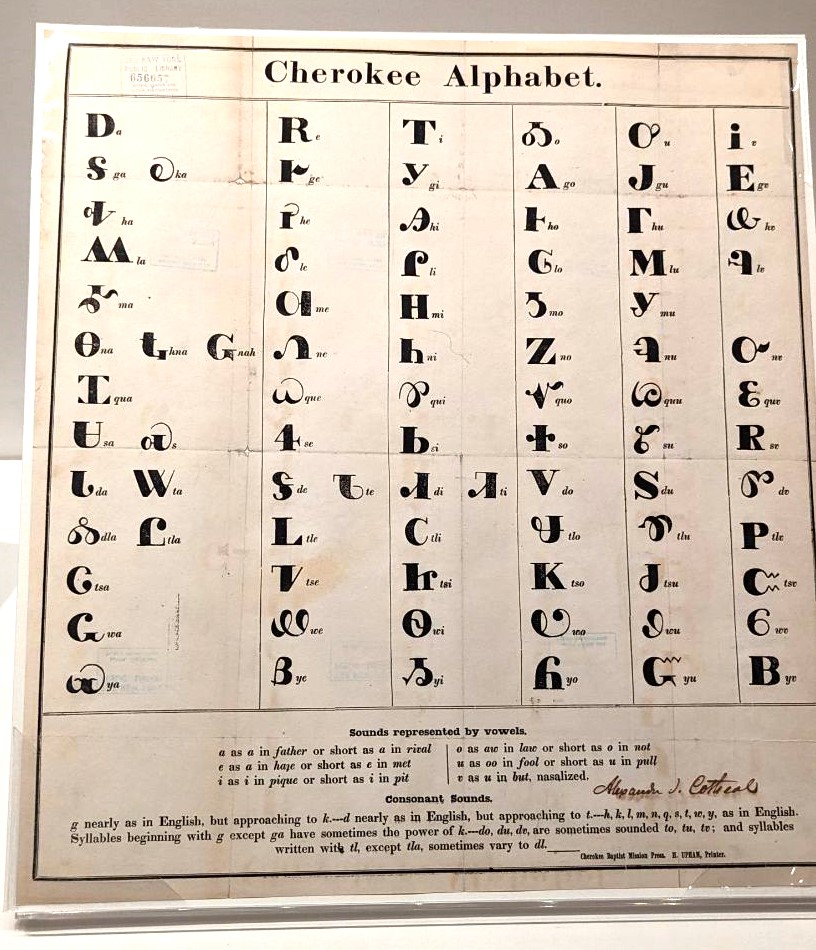 Cherokee Alphabet.
Ꭰ a Ꭱ e Ꭲ i Ꭳ o Ꭴ u Ꭵ v
Ꭶ ga Ꭷ ka Ꭸ ge Ꭹ gi Ꭺ go Ꭻ gu Ꭼ gv
Ꭽ ha Ꭾ he Ꭿ hi Ꮀ ho Ꮁ hu Ꮂ hv
Ꮃ la Ꮄ le Ꮅ li Ꮆ lo Ꮇ lu Ꮈ lv
Ꮉ ma Ꮊ me Ꮋ mi Ꮌ mo Ꮍ mu
Ꮎ na Ꮏ hna Ꮐ nah Ꮑ ne Ꮒ ni Ꮓ no Ꮔ nu Ꮕ nv
Ꮖ qua Ꮗ que Ꮘ qui Ꮙ quo Ꮚ quu Ꮛ quv
Ꮜ sa Ꮝ s Ꮞ se Ꮟ si Ꮠ so Ꮡ su Ꮢ sv
Ꮣ da Ꮤ ta Ꮥ de Ꮦ te Ꮧ di Ꮨ ti Ꮩ do Ꮪ du Ꮫ dv
Ꮬ dla Ꮭ tla Ꮮ tle Ꮯ tli Ꮰ tlo Ꮱ tlu Ꮲ tlv
Ꮳ tsa Ꮴ tse Ꮵ tsi Ꮶ tso Ꮷ tsu Ꮸ tsv
Ꮹ wa Ꮺ we Ꮻ wi Ꮼ wo Ꮽ wu Ꮾ wv
Ꮿ ya Ᏸ ye Ᏹ yi Ᏺ yo Ᏻ yu Ᏼ yv
Sounds represented by vowels.
a as a in father or short as a in rival
e as a in haze or short as e in met
i as i in pique or short as i in pit
o as aw in law or short as o in not
u as oo in fool or short as u in pull
v as u in but, nasalized.
Alexander J. Cotheal
Consonant Sounds.
g nearly as in English, but approaching to k.—d nearly as in English, but approaching to t.—h, k, l, m, n, q, s, t, w, y, as in English.
Syllables beginning with g except ga have sometimes the power of k.—do, du, dv, are sometimes sounded to, tu, tv; and syllables
written with tl, except tla, sometimes vary to dl.
Cherokee Baptist Mission Press. H. UPHAM, Printer.